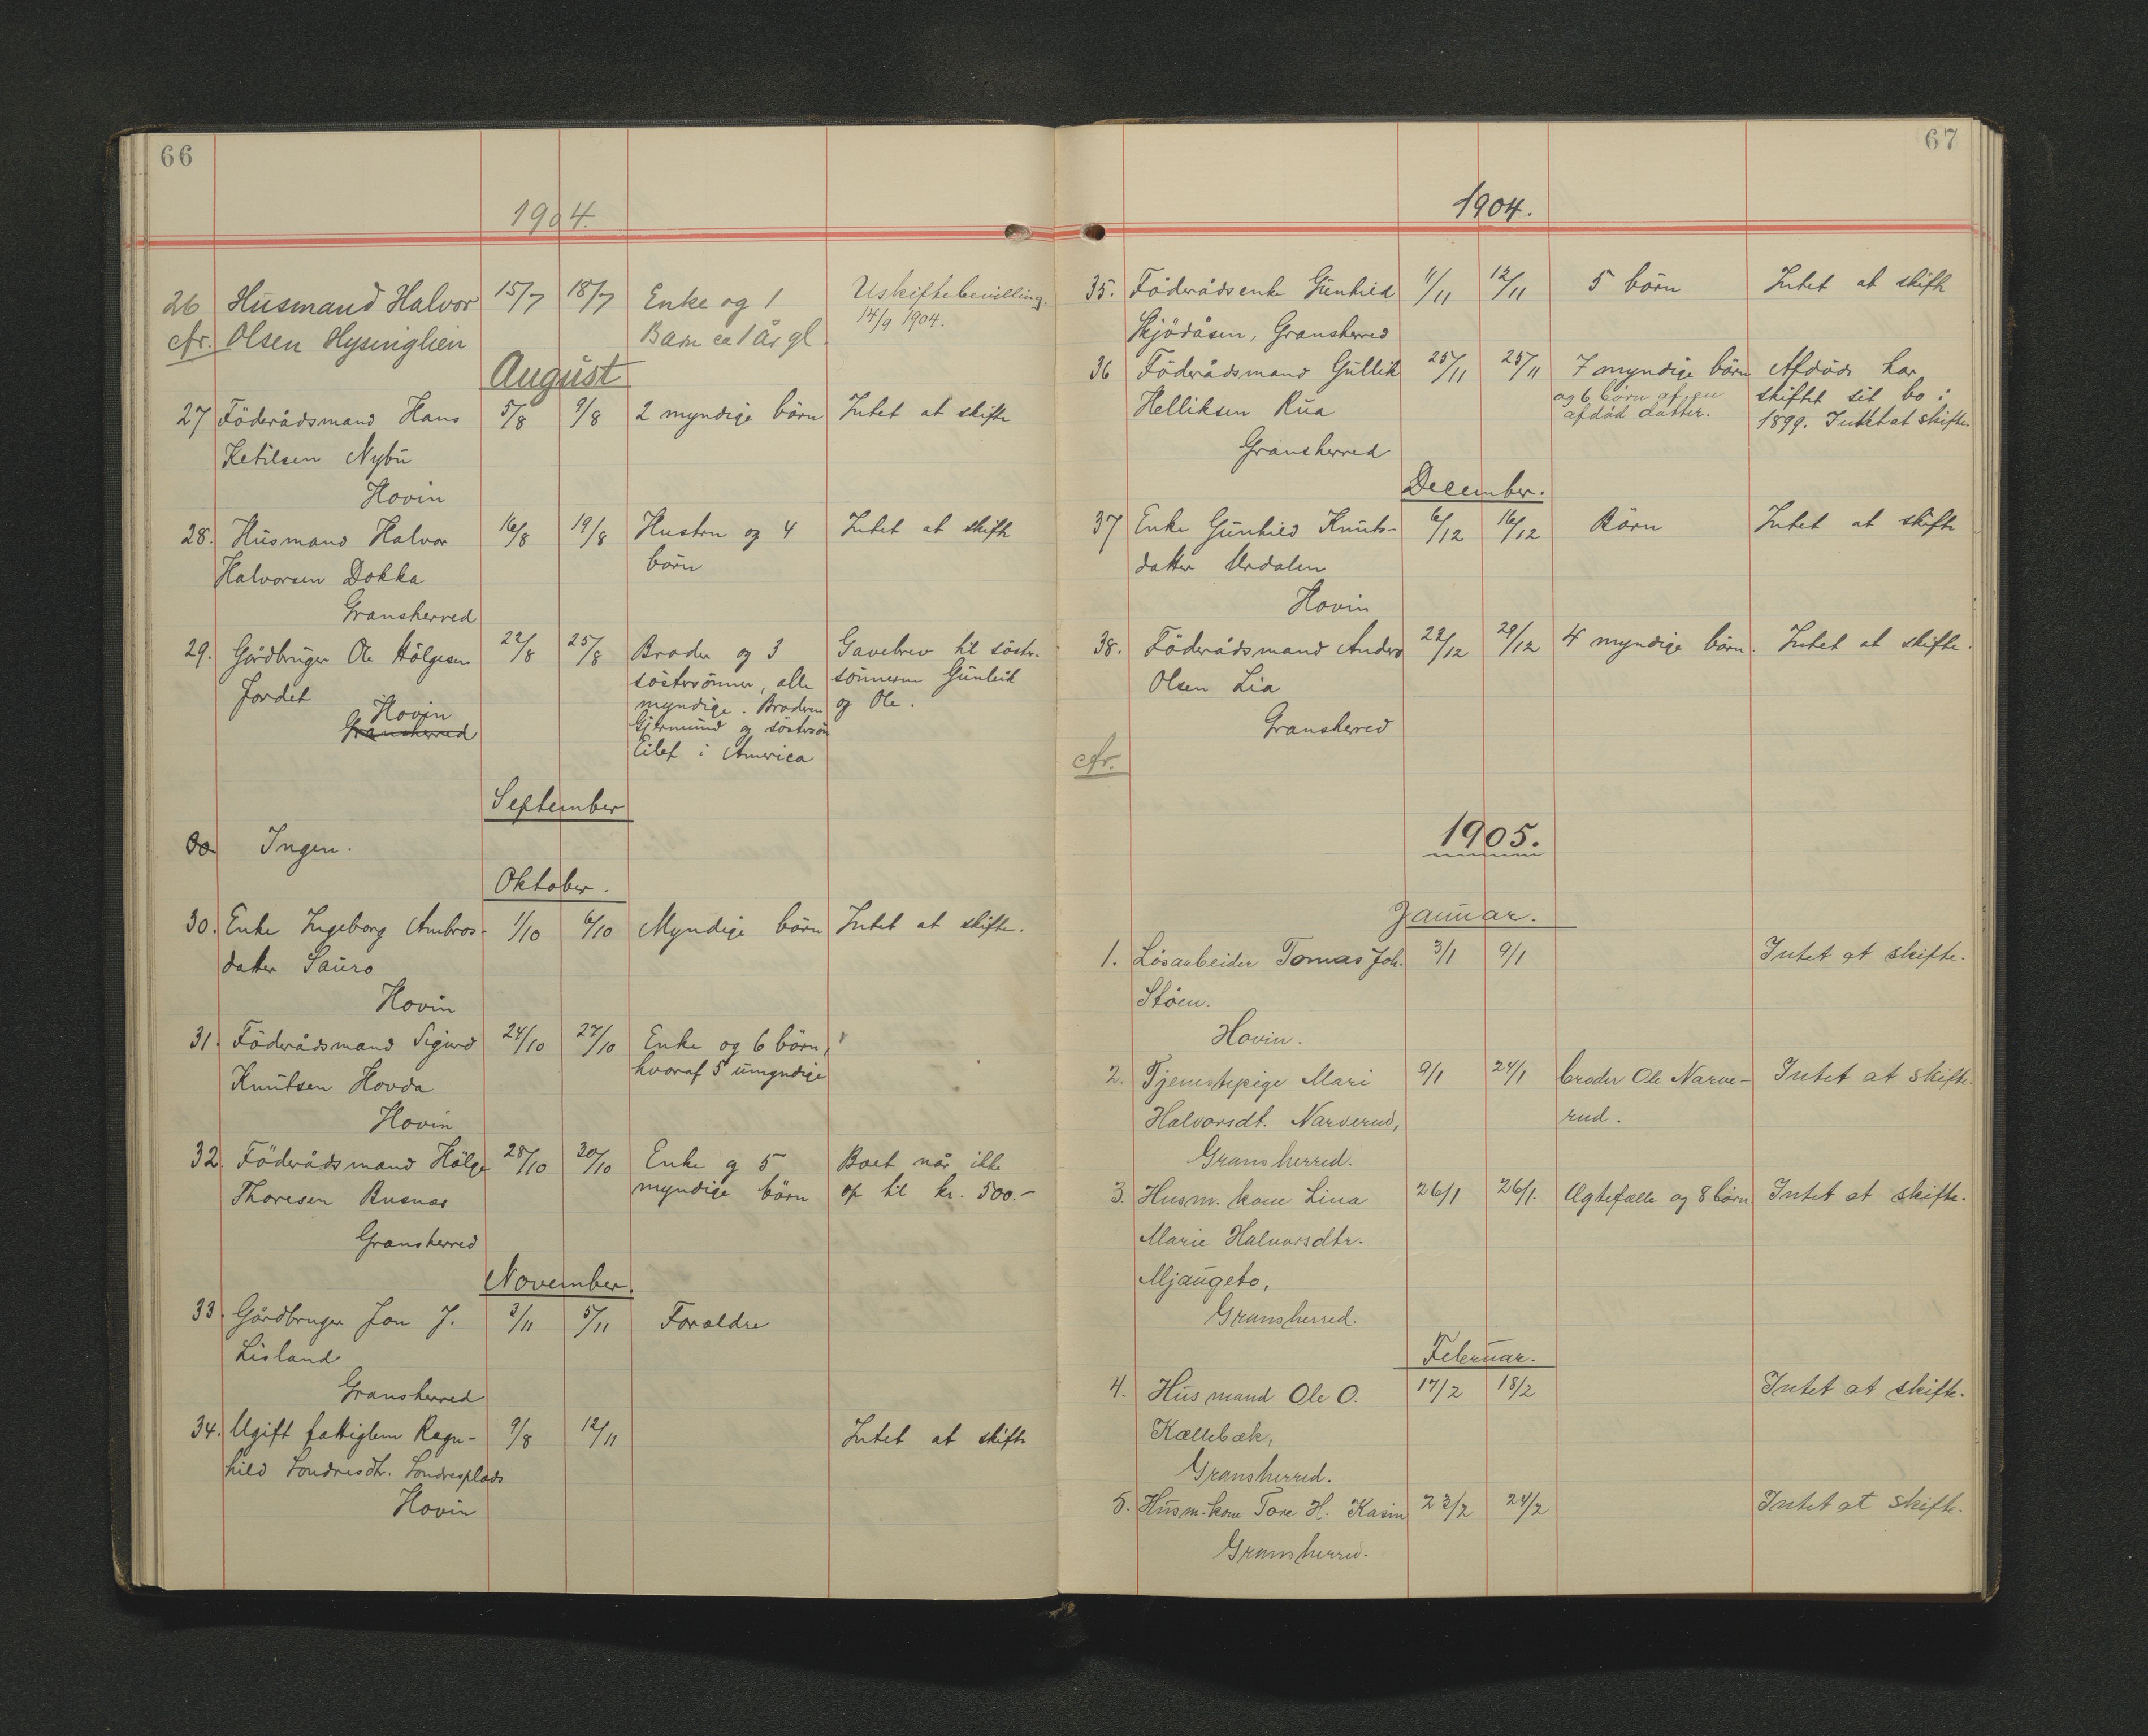 66
1904.
26 Husmand Halvor 15/7 18/7 Enke og 1 Uskiftebevilling.
Olsen Barn ca 1 år gl. 14/9 1904.
August
27 Föderådsmand Hans 5/8 9/8 2 myndige börn Intet at skifte
Ketilsen Nybu
Hovin
28. Husmand Halvor 16/8 19/8 Hustru og 4 Intet at skifte
Halvorsen Dokka börn
Gransherred
29. Gårdbruger Ole Hölgesen 22/8 25/8 Broder og 3 Gavebrev til söster-
Jordet söstersönner, alle sönnerne Gunleik
Hovin myndige. Broderen og Ole.
Gransherred Gjermund og söstersön
Eilef i America
September
Ingen.
Oktober.
30. Enke Ingeborg Ambros- 1/10 6/10 Myndige börn Intet at skifte.
datter Sauro
Hovin
31. Föderådsmand Sigurd 24/10 27/10 Enke og 6 börn,
Knutsen Hovda hvoraf 5 umyndige
Hovin
32. Föderådsmand Hölge 28/10 30/10 Enke og 5 Boet når ikke
Thoresen Busnas myndige börn op til kr. 500.-
Gransherred
November.
33. Gårdbruger Jon J. 3/11 5/11 Foraldre
Lisland
Gransherred
34. Ugift fattiglem Ragn- 9/8 12/11 Intet at skifte
hild Sondresdtr. Sondresplads
Hovin
67
1904.
35. Föderådsenke Gunhild 11/11 12/11 5 börn Intet at skifte
Skjödåsen, Gransherred
36 Föderådsmand Gullik 25/11 25/11 7 myndige börn Afdöde har
Helliksen Rua og 6 börn af en skiftet sit bo i
afdöd datter. 1899. Intet at skifte.
Gransherred
December.
37 Enke Gunhild Knuts- 6/12 16/12 Börn Intet at skifte
datter Urdalen
Hovin
38. Föderådsmand Anders 22/12 29/12 4 myndige börn. Intet at skifte.
Olsen Lia
Gransherred
1905.
Januar.
1. Lösarbeider Tomas Joh. 3/1 9/1 Intet at skifte.
Stöen.
Hovin.
2. Tjenestepige Mari 9/1 24/1 broder Ole Narve- Intet at skifte.
Halvorsdt. Narverud, rud.
Gransherred.
3. Husm. kone Lina 26/1 26/1. Ægtefælle og 8 börn. Intet at skifte.
Marie Halvorsdtr.
Mjaugeto,
Gransherred.
Februar.
4. Husmand Ole O. 17/2 18/2 Intet at skifte.
Kællebæk,
Gransherred.
5. Husm. kone Tore H. Kasin 23/2 24/2 Intet at skifte.
Gransherred.